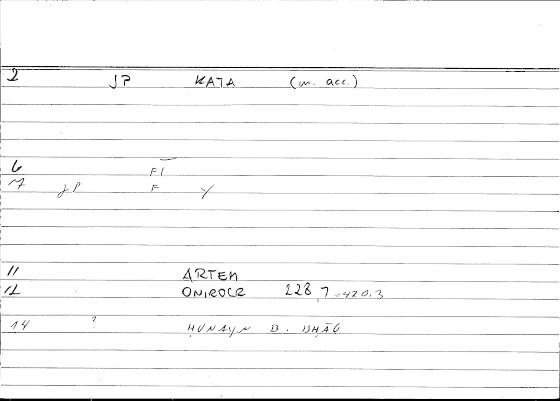 2 JP KATA (m. acc.)
6 FĪ
7 JP F Y
11 ARTEM
12 ONIROCR 228,7 = 420.3
14 ? ḤUNAYN B. ISḤĀQ